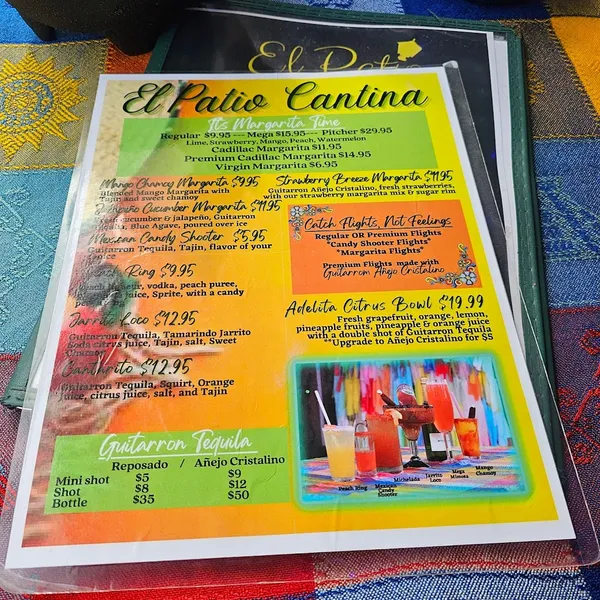 El Pat
El Patio Cantina
It's Margarita Time
Regular $9.95 --- Mega $15.95--- Pitcher $29.95
Lime, Strawberry, Mango, Peach, Watermelon
Cadillac Margarita $11.95
Premium Cadillac Margarita $14.95
Virgin Margarita $6.95
Mango Chamoy Margarita $9.95
Blended Mango Margarita with
Tajin and sweet chamoy
Cucumber Margarita $11.95
cucumber & jalapeño, Guitarron
Blue Agave, poured over ice
Mexican Candy Shooter $5.95
Guitarron Tequila, Tajin, flavor of your
Ring $9.95
peach puree,
juice, Sprite, with a candy
Jarrito Loco $12.95
Guitarron Tequila, Tamarindo Jarrito
Soda citrus juice, Tajin, salt, Sweet
Chamoy
Cantarito $12.95
Guitarron Tequila, Squirt, Orange
juice, citrus juice, salt, and Tajin
Strawberry Breeze Margarita $11.95
Guitarron Añejo Cristalino, fresh strawberries,
with our strawberry margarita mix & sugar rim
Catch Flights, Not Feelings
Regular OR Premium Flights
*Candy Shooter Flights*
*Margarita Flights*
Premium Flights made with
Guitarron Añejo Cristalino
Adelita Citrus Bowl $19.99
Fresh grapefruit, orange, lemon,
pineapple fruits, pineapple & orange juice
with a double shot of Guitarron Tequila
**Upgrade to Añejo Cristalino for $5
Guitarron Tequila
Reposado / Añejo Cristalino
Mini shot $5 $9
Shot $8 $12
Bottle $35 $50
Peach Ring
Mexican Candy Shooter
Michelada
Jarrito Loco
Mega Mimosa
Mango Chamoy